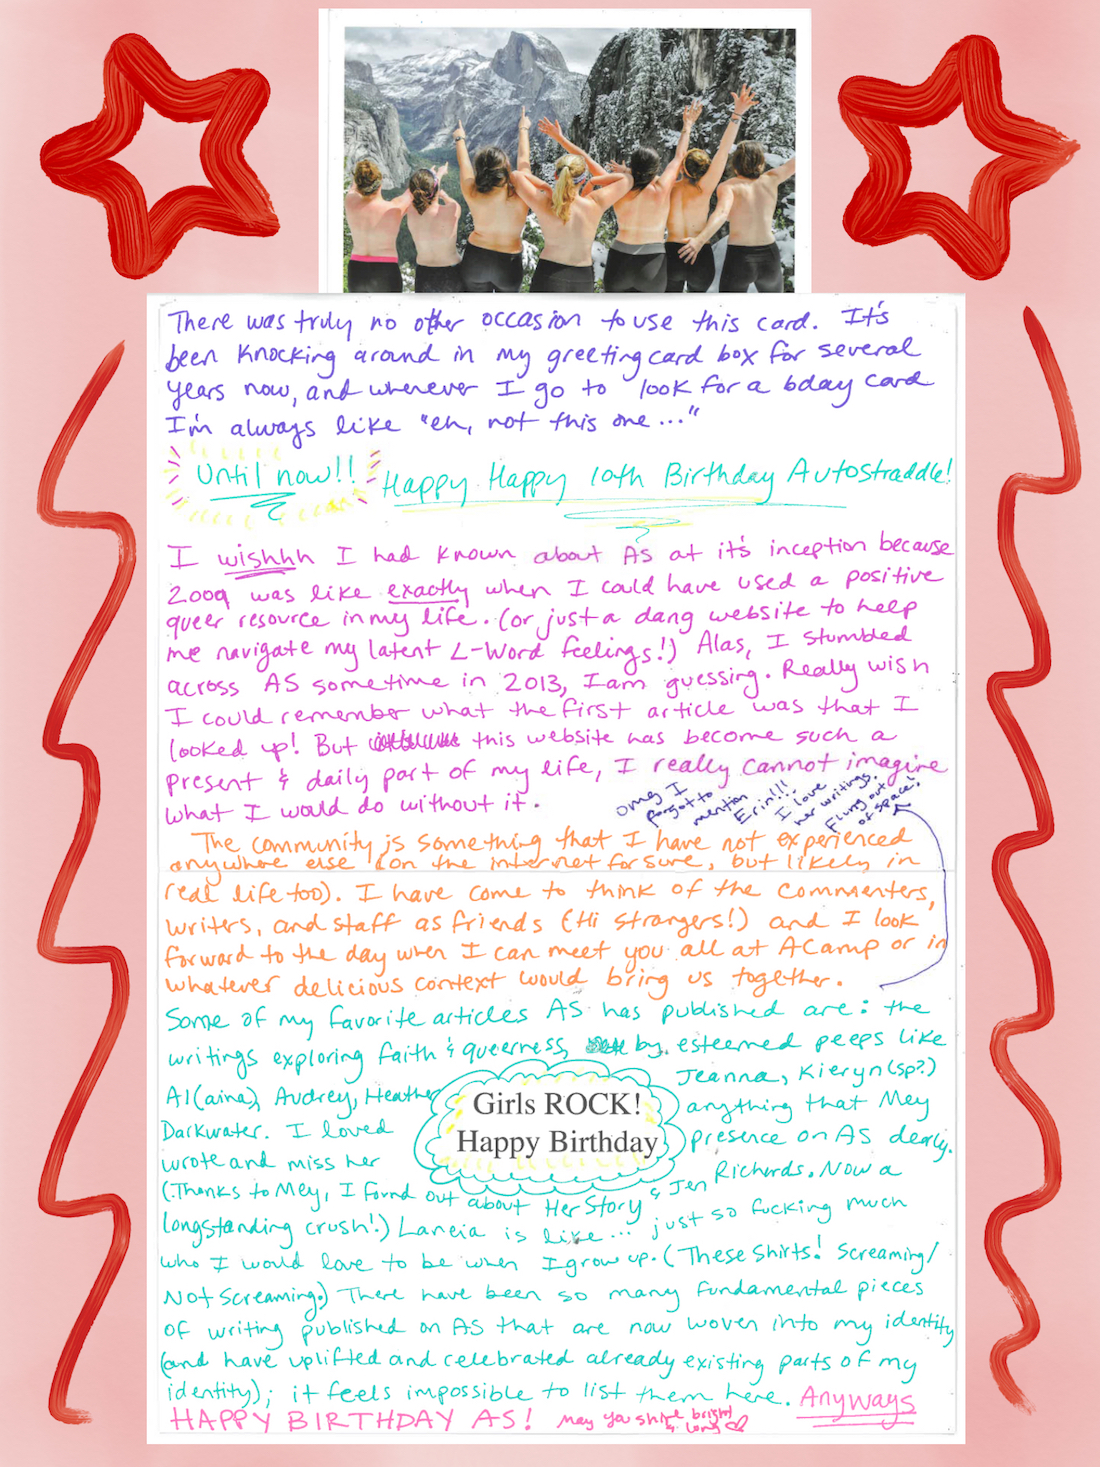 There was truly no other occasion to use this card. It's
been knocking around in my greeting card box for several
years now, and whenever I go to look for a bday card
I'm always like "eh, not this one..."
Until now!! Happy Happy 10th Birthday Autostraddle!
I wishhh I had known about AS at it's inception because
2009 was like exactly when I could have used a positive
queer resource in my life. (or just a dang website to help
me navigate my latent L-Word feelings!) Alas, I stumbled
across AS sometime in 2013, I am guessing. Really wish
I could remember what the first article was that I
looked up! But this website has become such a
present & daily part of my life, I really cannot imagine
what I would do without it.
omg I forgot to mention Erin!!! I love her writings. Flung out of space!
The community is something that I have not experienced
anywhere else (on the internet for sure, but likely in
real life too). I have come to think of the commenters,
writers, and staff as friends (Hi strangers!) and I look
forward to the day when I can meet you all at ACamp or in
whatever delicious context would bring us together.
Some of my favorite articles AS has published are: the
writings exploring faith & queerness, by esteemed peeps like
Al(aina), Audrey, Heather Jeanna, Kieryn (sp?)
Darkwater. I loved anything that Mey
wrote and miss her presence on AS dearly.
(Thanks to Mey, I found out about Her Story & Jen Richards. Now a
longstanding crush!) Laneia is like... just so fucking much
who I would love to be when I grow up. (These Shirts! Screaming/
Not Screaming.) There have been so many fundamental pieces
of writing published on AS that are now woven into my identity
(and have uplifted and celebrated already existing parts of my
identity); it feels impossible to list them here. Anyways
HAPPY BIRTHDAY AS! may you shine bright & long
Girls ROCK!
Happy Birthday